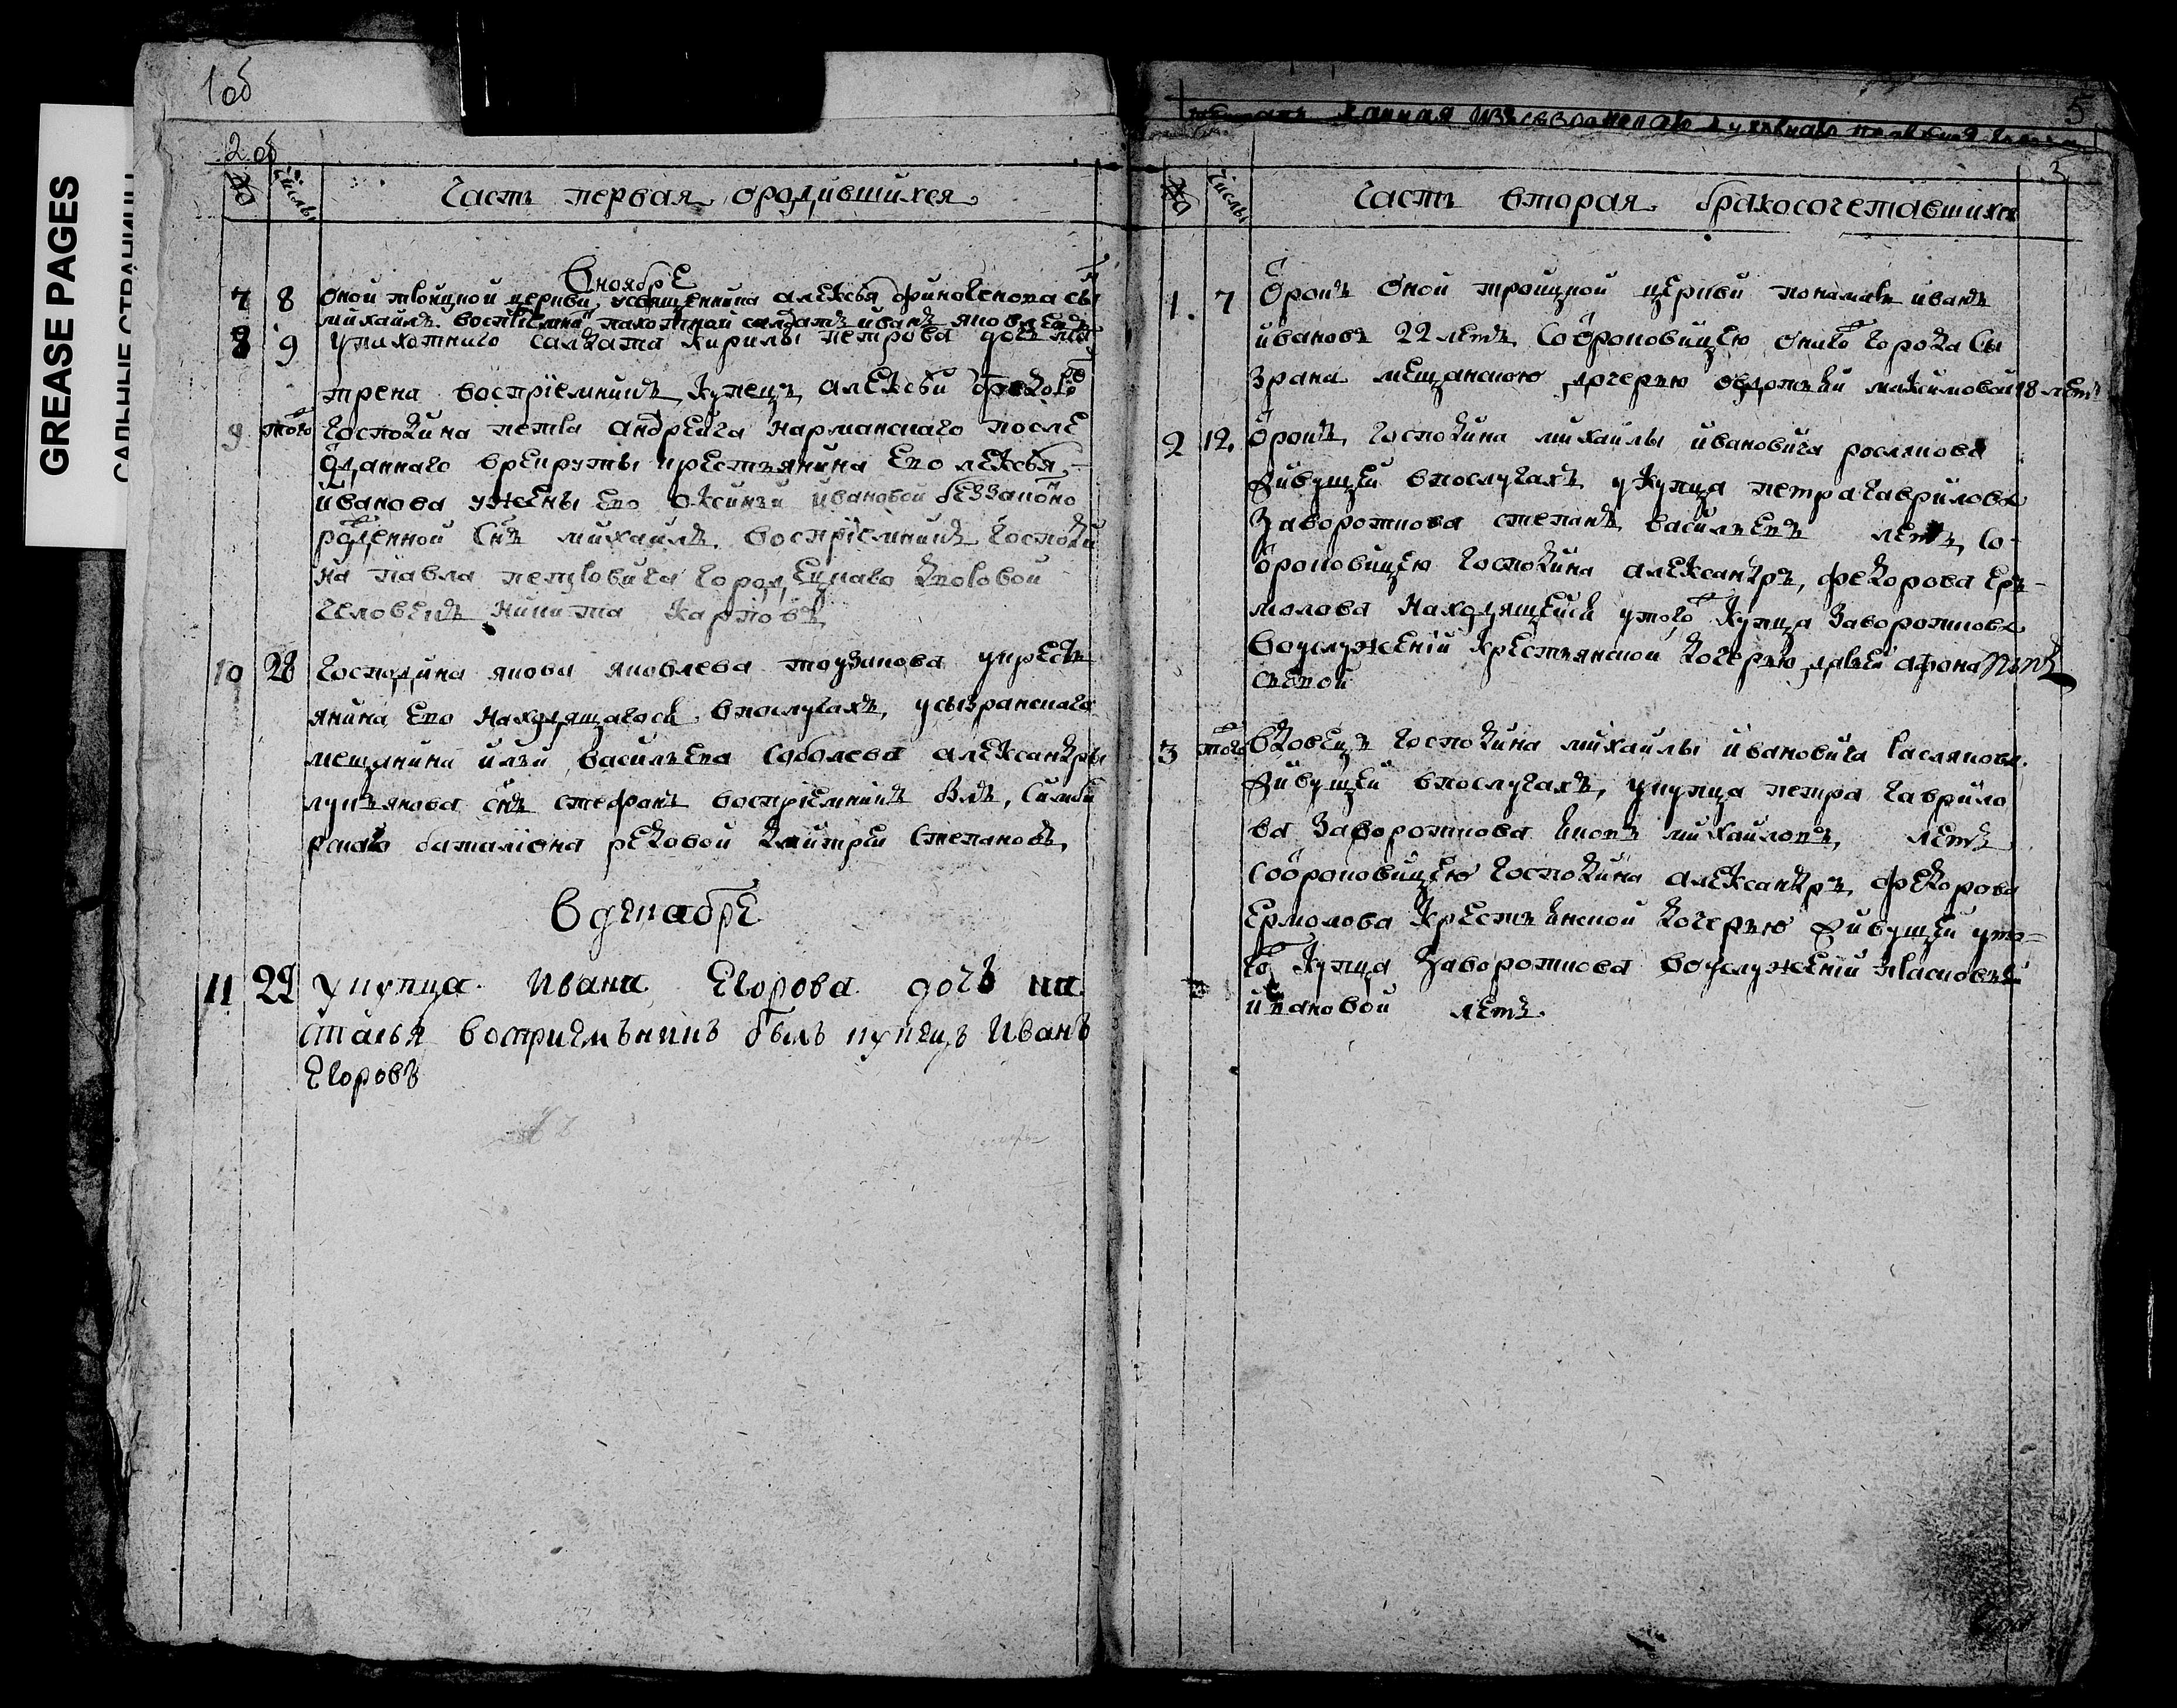 GREASE PAGES
1 об
2 об
№ числы Часть первая о родившихся
В ноябрЕ
7 8 Оной троицкой церкви священника алЕксѣя финогенова сынъ
михаилъ. воспрiемникъ пахотной салдатъ иванъ яковлевъ
8 9 у пахотнаго салдата кирилы петрова дочь ма
трена воспрiемникъ купецъ алЕксѣй
9 того Господина петра андрЕича нармацкаго послЕ
отданнаго в рекруты крестьянина Ево алЕксѣя
иванова у жЕны Ево аксиньи ивановой беззаконно
рожденной сынъ михаилъ. воспрiемникъ господи
на павла петровича городЕцкаго дворовой
человЕкъ никита карповъ
10 28 Господина якова яковлева тоузакова у крЕсть
янина Ево находящагося в послугахъ, у сызранскаго
мещанина ильи васильева соболева алЕксандры
лукьянова сынъ стефанъ воспрiемникъ былъ, симби
рскаго баталiона редовой дмитрей степановъ,
в декабрЕ
11 22 у купца Ивана Егорова дочь на
сталья восприемъникъ былъ купецъ Иванъ
Егоровъ
5
3
№ числы Часть вторая бракосочетавшихся
1. 7 Отрокъ оной троицкой цЕркви понамарь иванъ
ивановъ 22 летъ, со отроковицЕю онаго города Сы
зрана мещанскою дочерью овдотьей максимовой 18 лЕтъ
2 12. Отрокъ, господина михаилы ивановича рослякова
живущЕй в послугахъ у купца петра гаврилова
Заворотнова степанъ васильевъ летъ, со
отроковицЕю господина алЕксандръ, фЕдорова Ер
молова находящЕйся у того купца Заворотнова
во услужЕнiи крЕстьянской дочерью дарьЕй афона
сьевой
3 того вдовЕцъ господина михаилы ивановича расляковa
живущЕй в послугахъ, у купца петра гаврило
ва Заворотнова михаиловъ, лЕтъ
со отроковицЕю господина алЕксандръ фЕдорова
Ермолова крЕстьянской дочерью живущЕй у то
го купца Заворотнова во услужЕнiи
ивановой лЕтъ.